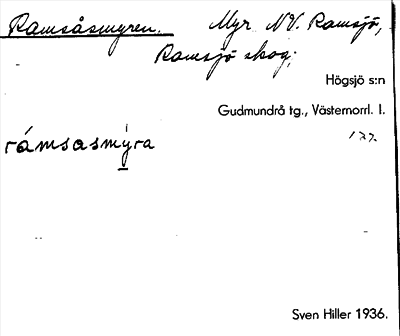 Ramsåsmyren. Myr NV. Ramsjö,
Ramsjö skog;
Högsjö s:n
Gudmundrå tg., Västernorrl. l.
177
rámsasmýra
Sven Hiller 1936.